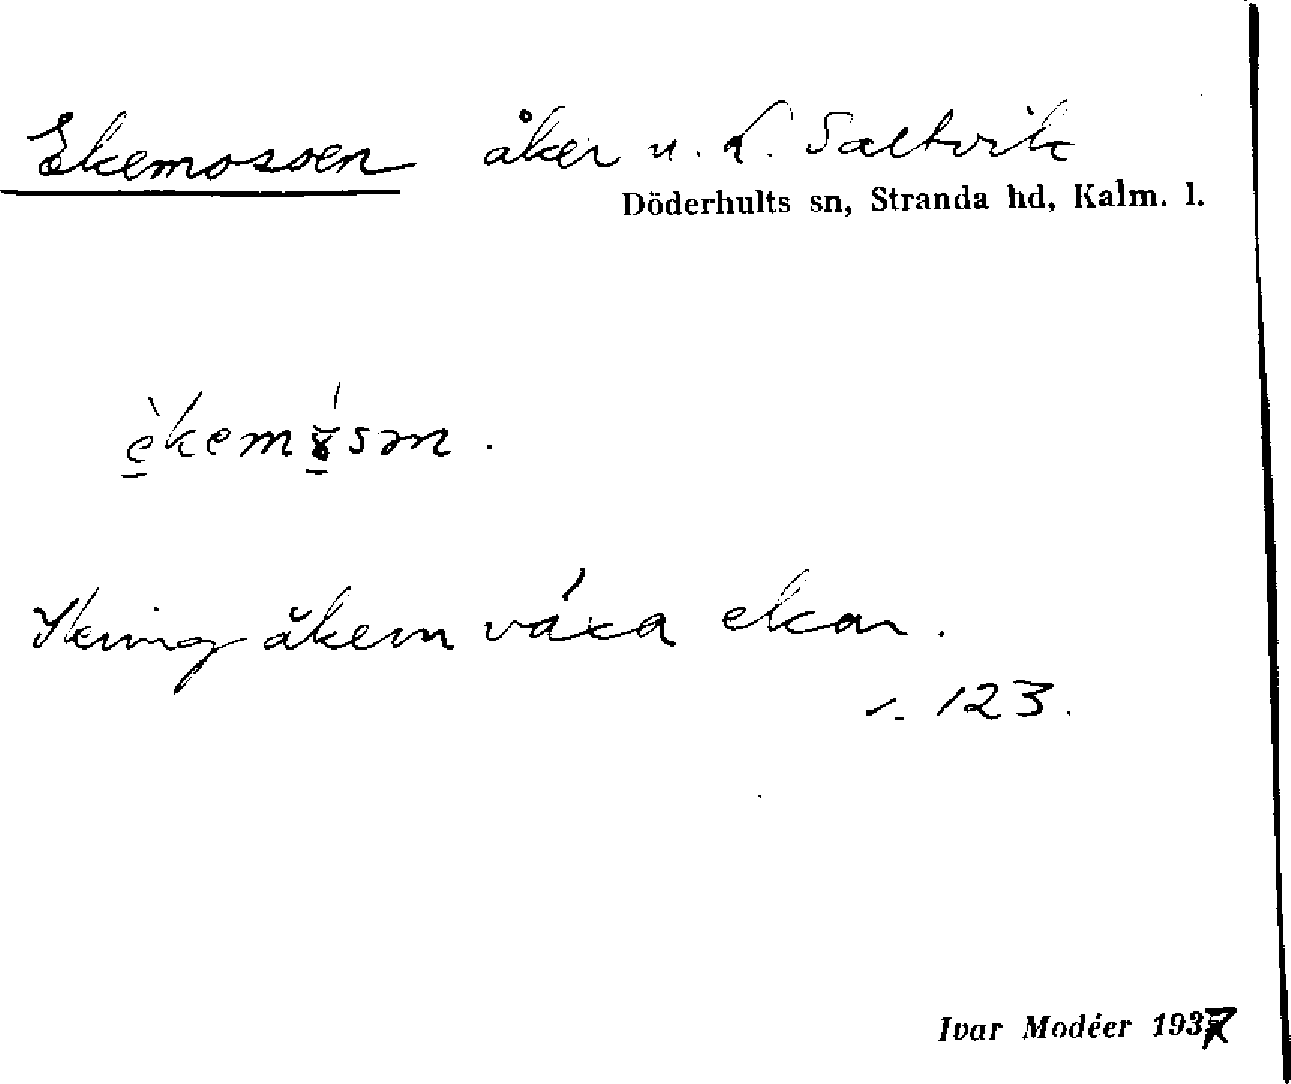 Ekemossen åker u. n. Saltvik
Döderhults sn, Stranda hd, Kalm. l.
èkemɤ́sən.
Kring åkern växa ekar.
s. 123.
Ivar Modéer 1937